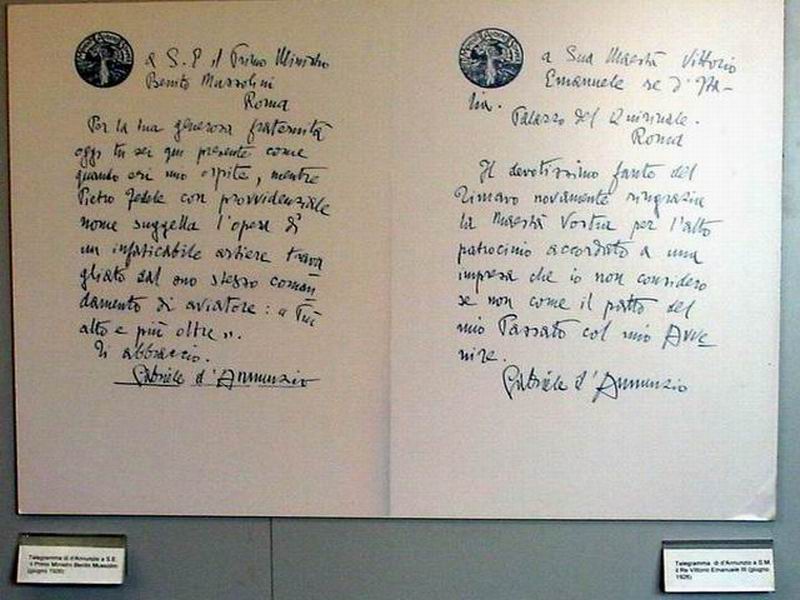 a S. E il Primo Ministro
Benito Mussolini
Roma
Per la tua generosa fraternità
oggi tu sei qui presente come
quando eri mio ospite, mentre
Pietro Fedele con provvidenziale
nome suggella l'opera di
un infaticabile artiere trava
gliato dal suo stesso coman
damento di aviatore: « Più
alto e più oltre ».
Ti abbraccio.
Gabriele d'Annunzio
a Sua Maestà Vittorio
Emanuele re d'Ita-
lia.
Palazzo del Quirinale.
Roma
Il devotissimo fante del
Timavo novamente ringrazia
la Maestà Vostra per l'alto
patrocinio accordato a una
impresa che io non considero
se non come il patto del
mio Passato col mio Avve
nire.
Gabriele d'Annunzio
Telegramma di d'Annunzio a S.E.
il Primo Ministro Benito Mussolini
(giugno 1926)
Telegramma di d'Annunzio a S.M.
il Re Vittorio Emanuele III (giugno
1926)